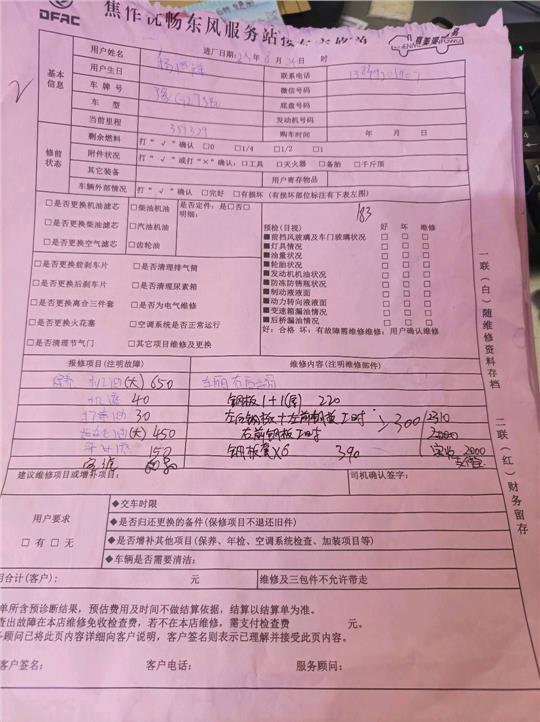 DFAC
焦作 畅东风服务站接
进厂日期: 年 月 日 时
基本信息
用户姓名
用户生日
联系电话
车牌号
微信号码
车型
底盘号码
当前里程 359329
发动机号码
购车时间 年 月 日
修前状态
剩余燃料 打“√”确认 □0 □1/4 □1/2 □1
附件状况 打“√”或打“×”确认: □工具 □灭火器 □备胎 □千斤顶
其它装备
用户寄存物品
车辆外部情况 □完好 □有损坏 (有损坏部位标注有下表左图)
□是否更换机油滤芯 □柴油机油
□是否更换柴油滤芯 □汽油机油
□是否更换空气滤芯 □齿轮油
是否定件: 是□否□
明细:
183
□是否更换前刹车片 □是否清理排气筒
□是否更换后刹车片 □是否清理尿素箱
□是否更换离合三件套 □是否为电气维修
□是否更换火花塞 □空调系统是否正常运行
□是否清理节气门 □其它项目维修及更换
预检(目视) 好 坏 维修
■前挡风玻璃及车门玻璃状况 □ □ □
■灯具情况 □ □ □
■油量状况 □ □ □
■轮胎状况 □ □ □
■发动机机油状况 □ □ □
■防冻防锈瓶状况 □ □ □
■制动液液面 □ □ □
■动力转向液液面 □ □ □
■变速箱漏油情况 □ □ □
■后桥漏油情况 □ □ □
好: 合格 坏: 有故障需维修维修: 用户确认维修
报修项目(注明故障) 维修内容(注明维修部件)
机油(大) 650
机滤 40 钢板1+1(尾) 220
30 左后钢板+左前钢板工时
(大) 450 右前钢板工时
300
2310
150 钢板套×6 390
实收 2000
建议维修项目或增补项目:
司机确认签字:
用户要求
□有 □无
◆交车时限
◆是否归还更换的备件(保修项目不退还旧件)
◆是否增补其他项目(保养、年检、空调系统检查、加装项目等)
◆车辆是否需要清洁:
用合计(客户): 元 维修及三包件不允许带走
单所含预诊断结果，预估费用及时间不做结算依据，结算以结算单为准。
查出故障在本店维修免收检查费，若不在本店维修，需支付检查费 元。
务顾问已将此页内容详细向客户说明，客户签名则表示已理解并接受此页内容。
客户签名: 客户电话: 服务顾问:
一联(白)随维修资料存档
二联(红)财务留存